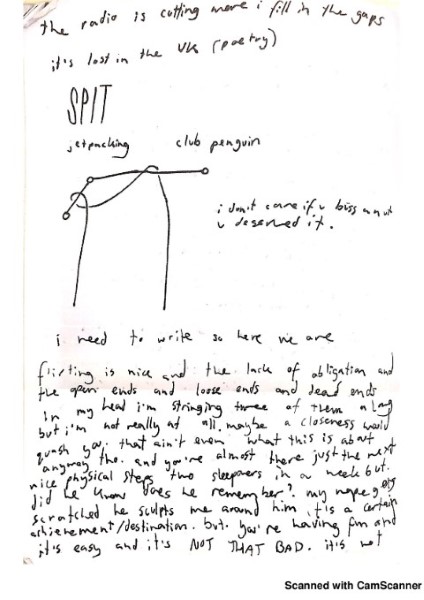 the radio is cutting more i fill in the gaps
it's lost in the UK (poetry)
SPIT
jetpacking club penguin
i don't care if u buss a nut
u deserved it.
i need to write so here we are
flirting is nice and the lack of obligation and
the open ends and loose ends and dead ends
in my head i'm stringing three of them along
but i'm not really at all. maybe a closeness would
quash you. that ain't even what this is about
anyway tho. and you're almost there just the next
nice physical steps two sleepovers in a week but.
did he know does he remember? my nape goes
scratched he sculpts me around him it's a certain
achievement/destination. but. you're having fun and
it's easy and it's NOT THAT BAD. it's not
Scanned with CamScanner